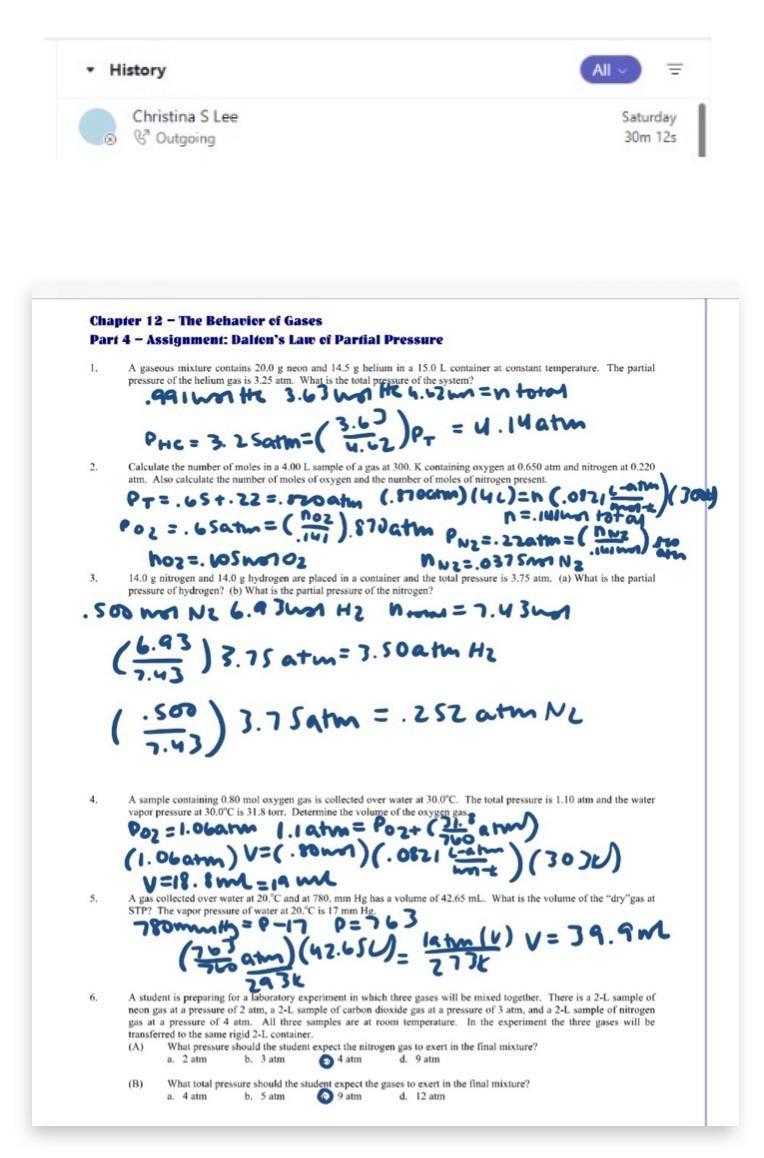 History
All
Christina S Lee
Saturday
Outgoing
30m 12s
Chapter 12 – The Behavior of Gases
Part 4 – Assignment: Dalton's Law of Partial Pressure
1. A gaseous mixture contains 20.0 g neon and 14.5 g helium in a 15.0 L container at constant temperature. The partial
pressure of the helium gas is 3.25 atm. What is the total pressure of the system?
.991 mol He 3.63 mol He 4.62 mol = n total
PHe = 3.25atm = (3.63/4.62) PT = 4.14atm
2. Calculate the number of moles in a 4.00 L sample of a gas at 300. K containing oxygen at 0.650 atm and nitrogen at 0.220
atm. Also calculate the number of moles of oxygen and the number of moles of nitrogen present.
PT = .65 + .22 = .870atm (.870atm)(4L) = n (.0821 L-atm/mol-k)(300k)
n = .141mol total
PO2 = .65atm = (nO2/.141) .870atm PN2 = .22atm = (nN2/.141mol) .870 atm
nO2 = .105 mol O2 nN2 = .0375 mol N2
3. 14.0 g nitrogen and 14.0 g hydrogen are placed in a container and the total pressure is 3.75 atm. (a) What is the partial
pressure of hydrogen? (b) What is the partial pressure of the nitrogen?
.500 mol N2 6.93mol H2 ntotal = 7.43mol
(6.93/7.43) 3.75 atm = 3.50atm H2
(.500/7.43) 3.75atm = .252 atm N2
4. A sample containing 0.80 mol oxygen gas is collected over water at 30.0°C. The total pressure is 1.10 atm and the water
vapor pressure at 30.0°C is 31.8 torr. Determine the volume of the oxygen gas.
PO2 = 1.06atm 1.1atm = PO2 + (31.8/760 atm)
(1.06atm) V = (.80mol)(.0821 L-atm/mol-k)(303k)
V = 18.8mL = 19 mL
5. A gas collected over water at 20.°C and at 780. mm Hg has a volume of 42.65 mL. What is the volume of the "dry"gas at
STP? The vapor pressure of water at 20.°C is 17 mm Hg.
780mmHg = P - 17 P = 763
(763/760 atm)(42.65L)/293k = 1atm (V)/273k V = 39.9mL
6. A student is preparing for a laboratory experiment in which three gases will be mixed together. There is a 2-L sample of
neon gas at a pressure of 2 atm, a 2-L sample of carbon dioxide gas at a pressure of 3 atm, and a 2-L sample of nitrogen
gas at a pressure of 4 atm. All three samples are at room temperature. In the experiment the three gases will be
transferred to the same rigid 2-L container.
(A) What pressure should the student expect the nitrogen gas to exert in the final mixture?
a. 2 atm b. 3 atm 4 atm d. 9 atm
(B) What total pressure should the student expect the gases to exert in the final mixture?
a. 4 atm b. 5 atm 9 atm d. 12 atm